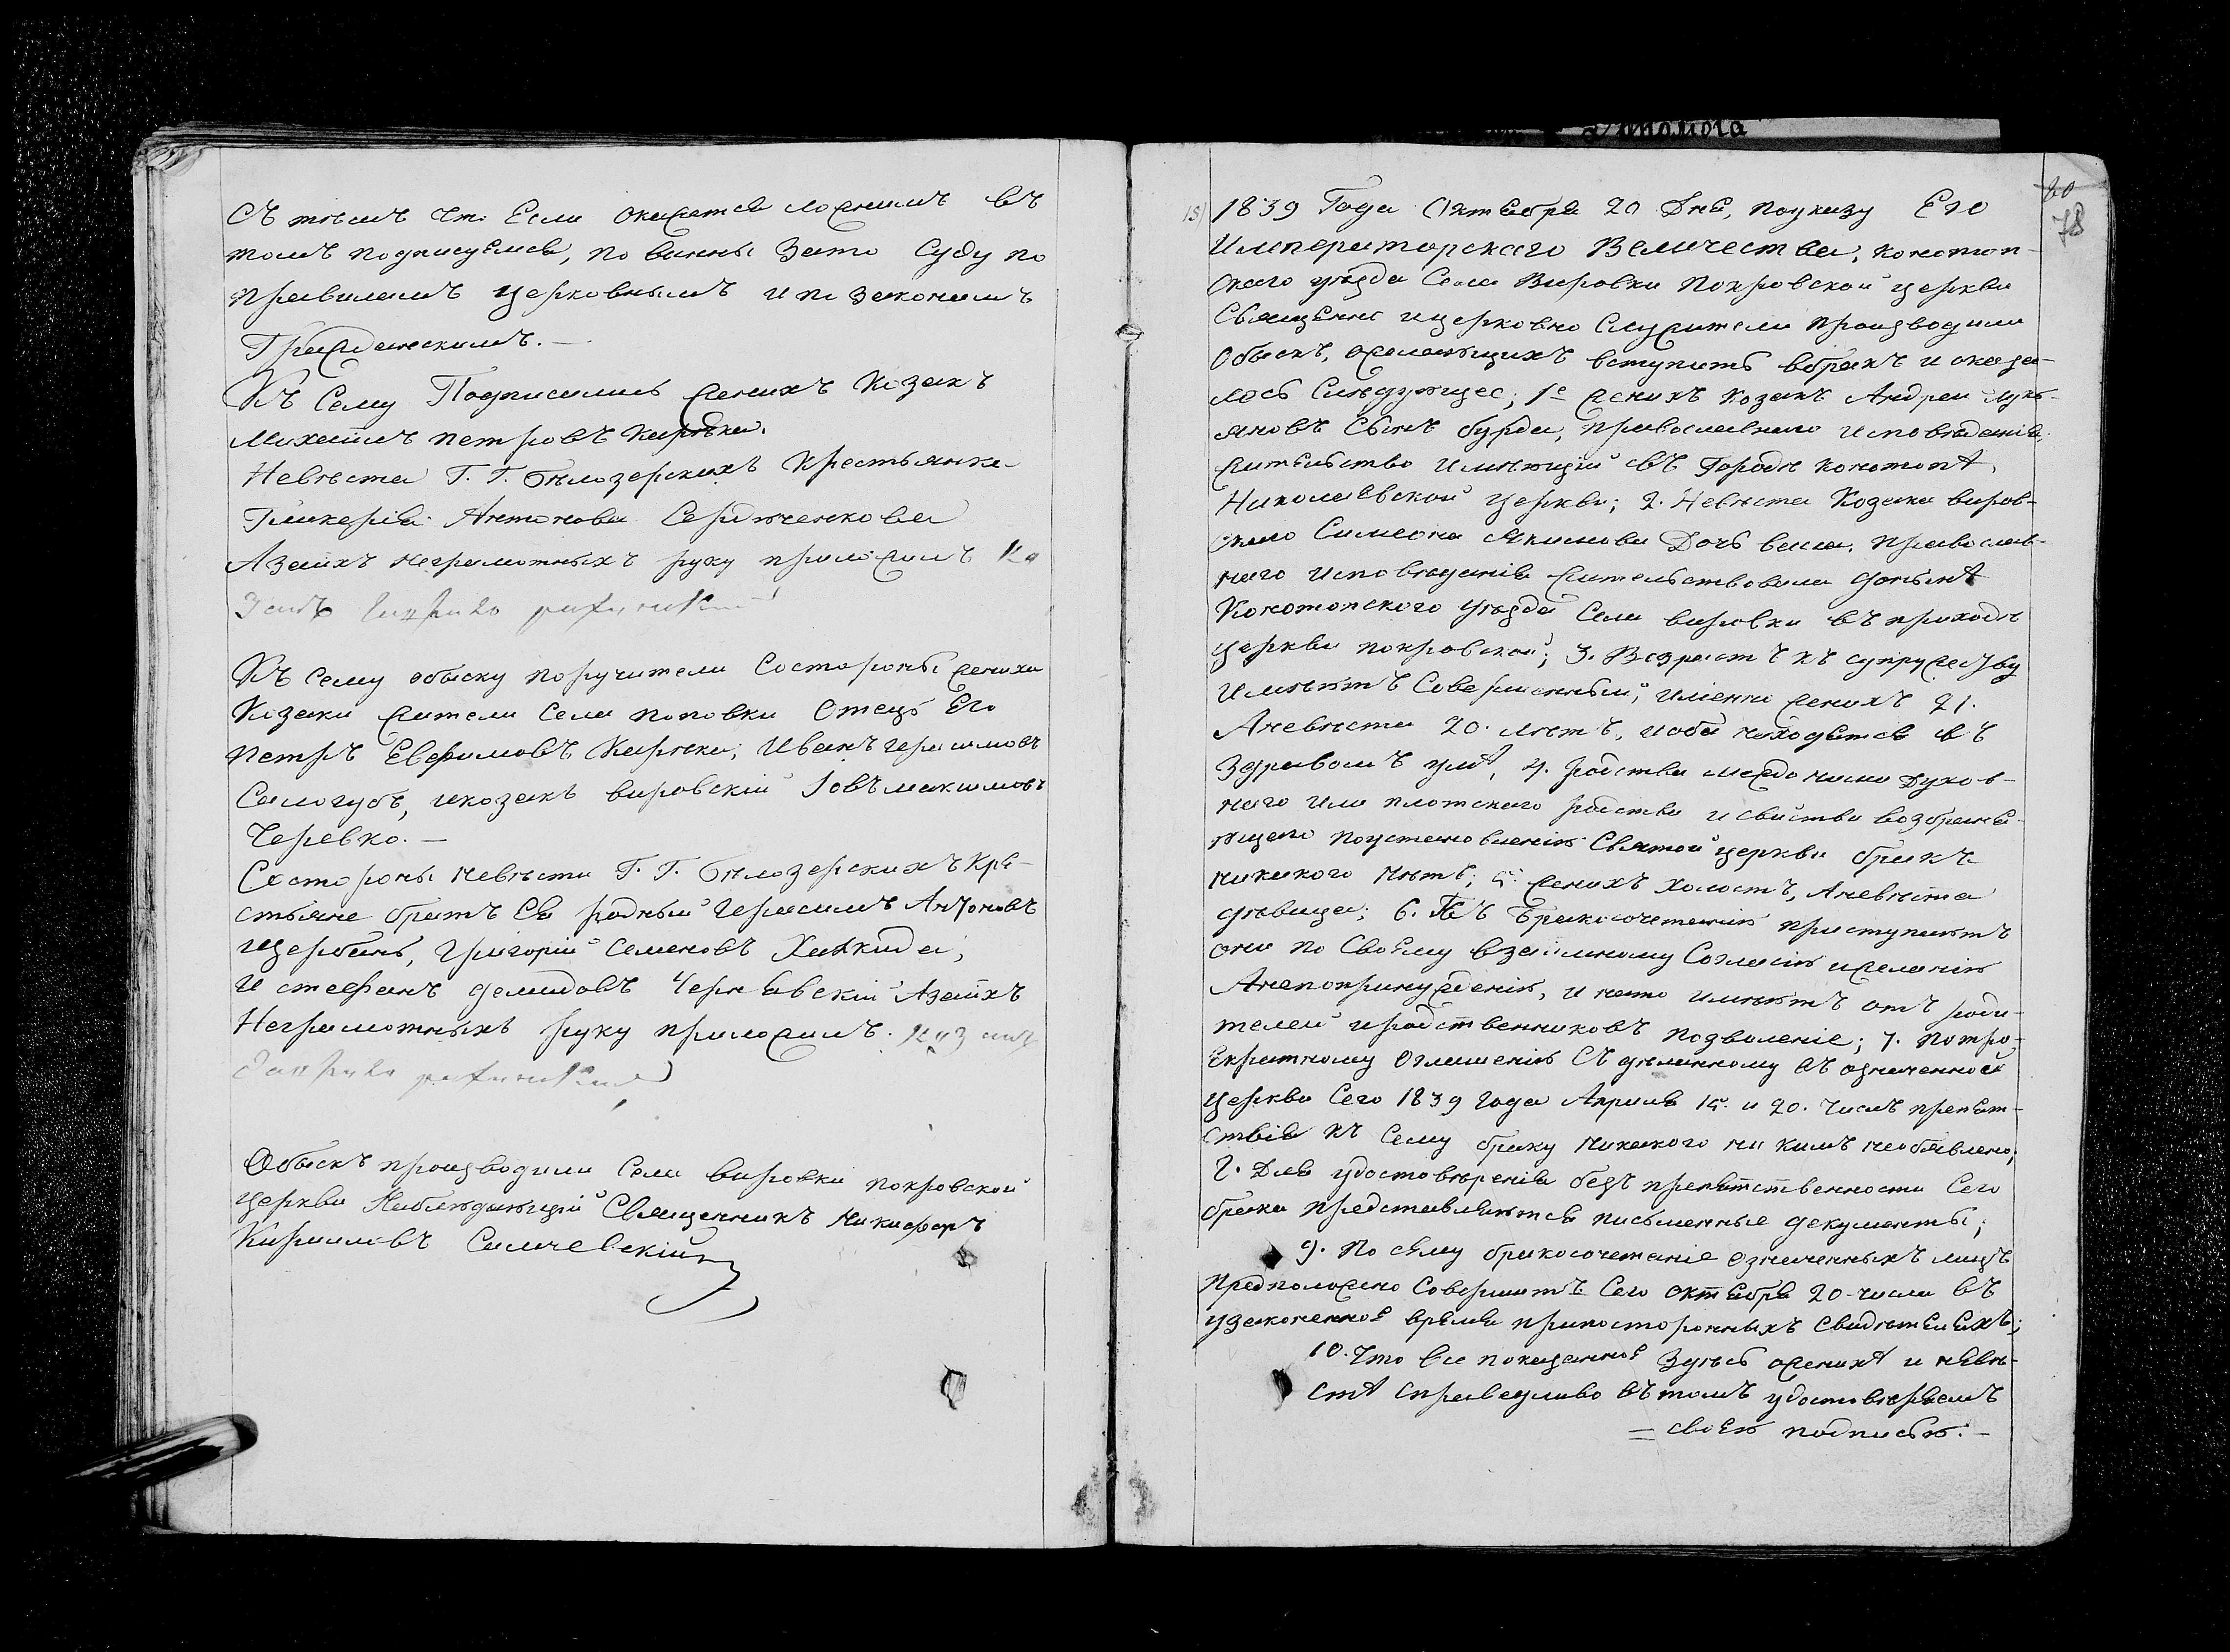 Съ тѣмъ что Если окажется ложнымъ въ
томъ подписуемся, по винны Зато Суду по
правиламъ церковнымъ и по законамъ
Гражданскимъ.—
Къ Сему Подписались женихъ Козакъ
Михаилъ петровъ Карѣка.
Невѣста Г. Г. Бѣлозерскихъ Крестьянка
Гликерія Антонова Сердюченкова
Азаихъ неграмотныхъ руку приложилъ Ко
Закъ
Къ Сему обыску поручители Состороны жениха
Козаки жители Села поповки Отецъ Его
петръ Евфимовъ Карѣка; Иванъ герасимовъ
Самогубъ, икозакъ вировскій Іовъ макимовъ
Черевко.—
Состороны невѣсты Г. Г. Бѣлозерскихъ Кре-
стьяне братъ Ея родный Герасимъ Антоновъ
Григорій Семеновъ
И стефанъ демидовъ Чернявскій Азаихъ
Неграмотныхъ руку приложилъ. Козакъ
Обыскъ производили Села вировки покровской
церкви Наблюдающій Священникъ никифоръ
Кириловъ Самчевскій
151
1839 Года Октября 20 Дня, поуказу Его
Императорскаго Величества, конотоп-
скаго уѣзда Села Вировки Покровской церкви
Священно ицерковно Служители производили
Обыскъ, желающихъ вступить вбракъ и оказа-
лось Слѣдующее; 1е женихъ Козакъ Андрей Лукъ-
яновъ Сынъ бурда, православнаго исповѣданія,
жительство имѣющій въ Городѣ конотопѣ,
Николаевской церкви; 2. Невѣста Козака виров-
скаго Симеона Якимова Дочь православ-
наго исповѣданія жительствовала донынѣ
Конотопского уѣзда Села вировки въ приходѣ
церкви покровской; 3. Возрастъ къ супружеству
имѣютъ Совершенный, именно женихъ 21.
Аневѣста 20. лѣтъ, иоба находятся въ
Здравомъ умѣ, 4. родства между ними духов-
наго или плотскаго родства и свойства возбраня-
ющаго поустановленію Святой церкви бракъ
никакого нѣтъ; 5. женихъ холостъ, Аневѣста
дѣвица; 6. Къ Бракосочетанію приступаютъ
они по Своему взаимному Согласію ижеланію
Анепопринужденію, и нато имѣютъ отъ роди-
телей иродственниковъ подзволеніе; 7. потро-
екратному оглашенію Сдѣланному въ означенной
церкви Сего 1839 года Апреля 15. и 20. числъ препят-
ствія къ Сему браку никакого ни кимъ необявлено;
8. Для удостовѣренія безъ препятственности Сего
брака представляются письменные документы;
9. По сему бракосочетаніе означенныхъ лицъ
предположено Совершитъ Сего октября 20 числа въ
узаконенное время припосторонныхъ Свидѣтеляхъ;
10. Что все показанное Здѣсь оженихѣ и невѣ-
стѣ справедливо въ томъ удостовѣряемъ
= своею подписью.—
60
78